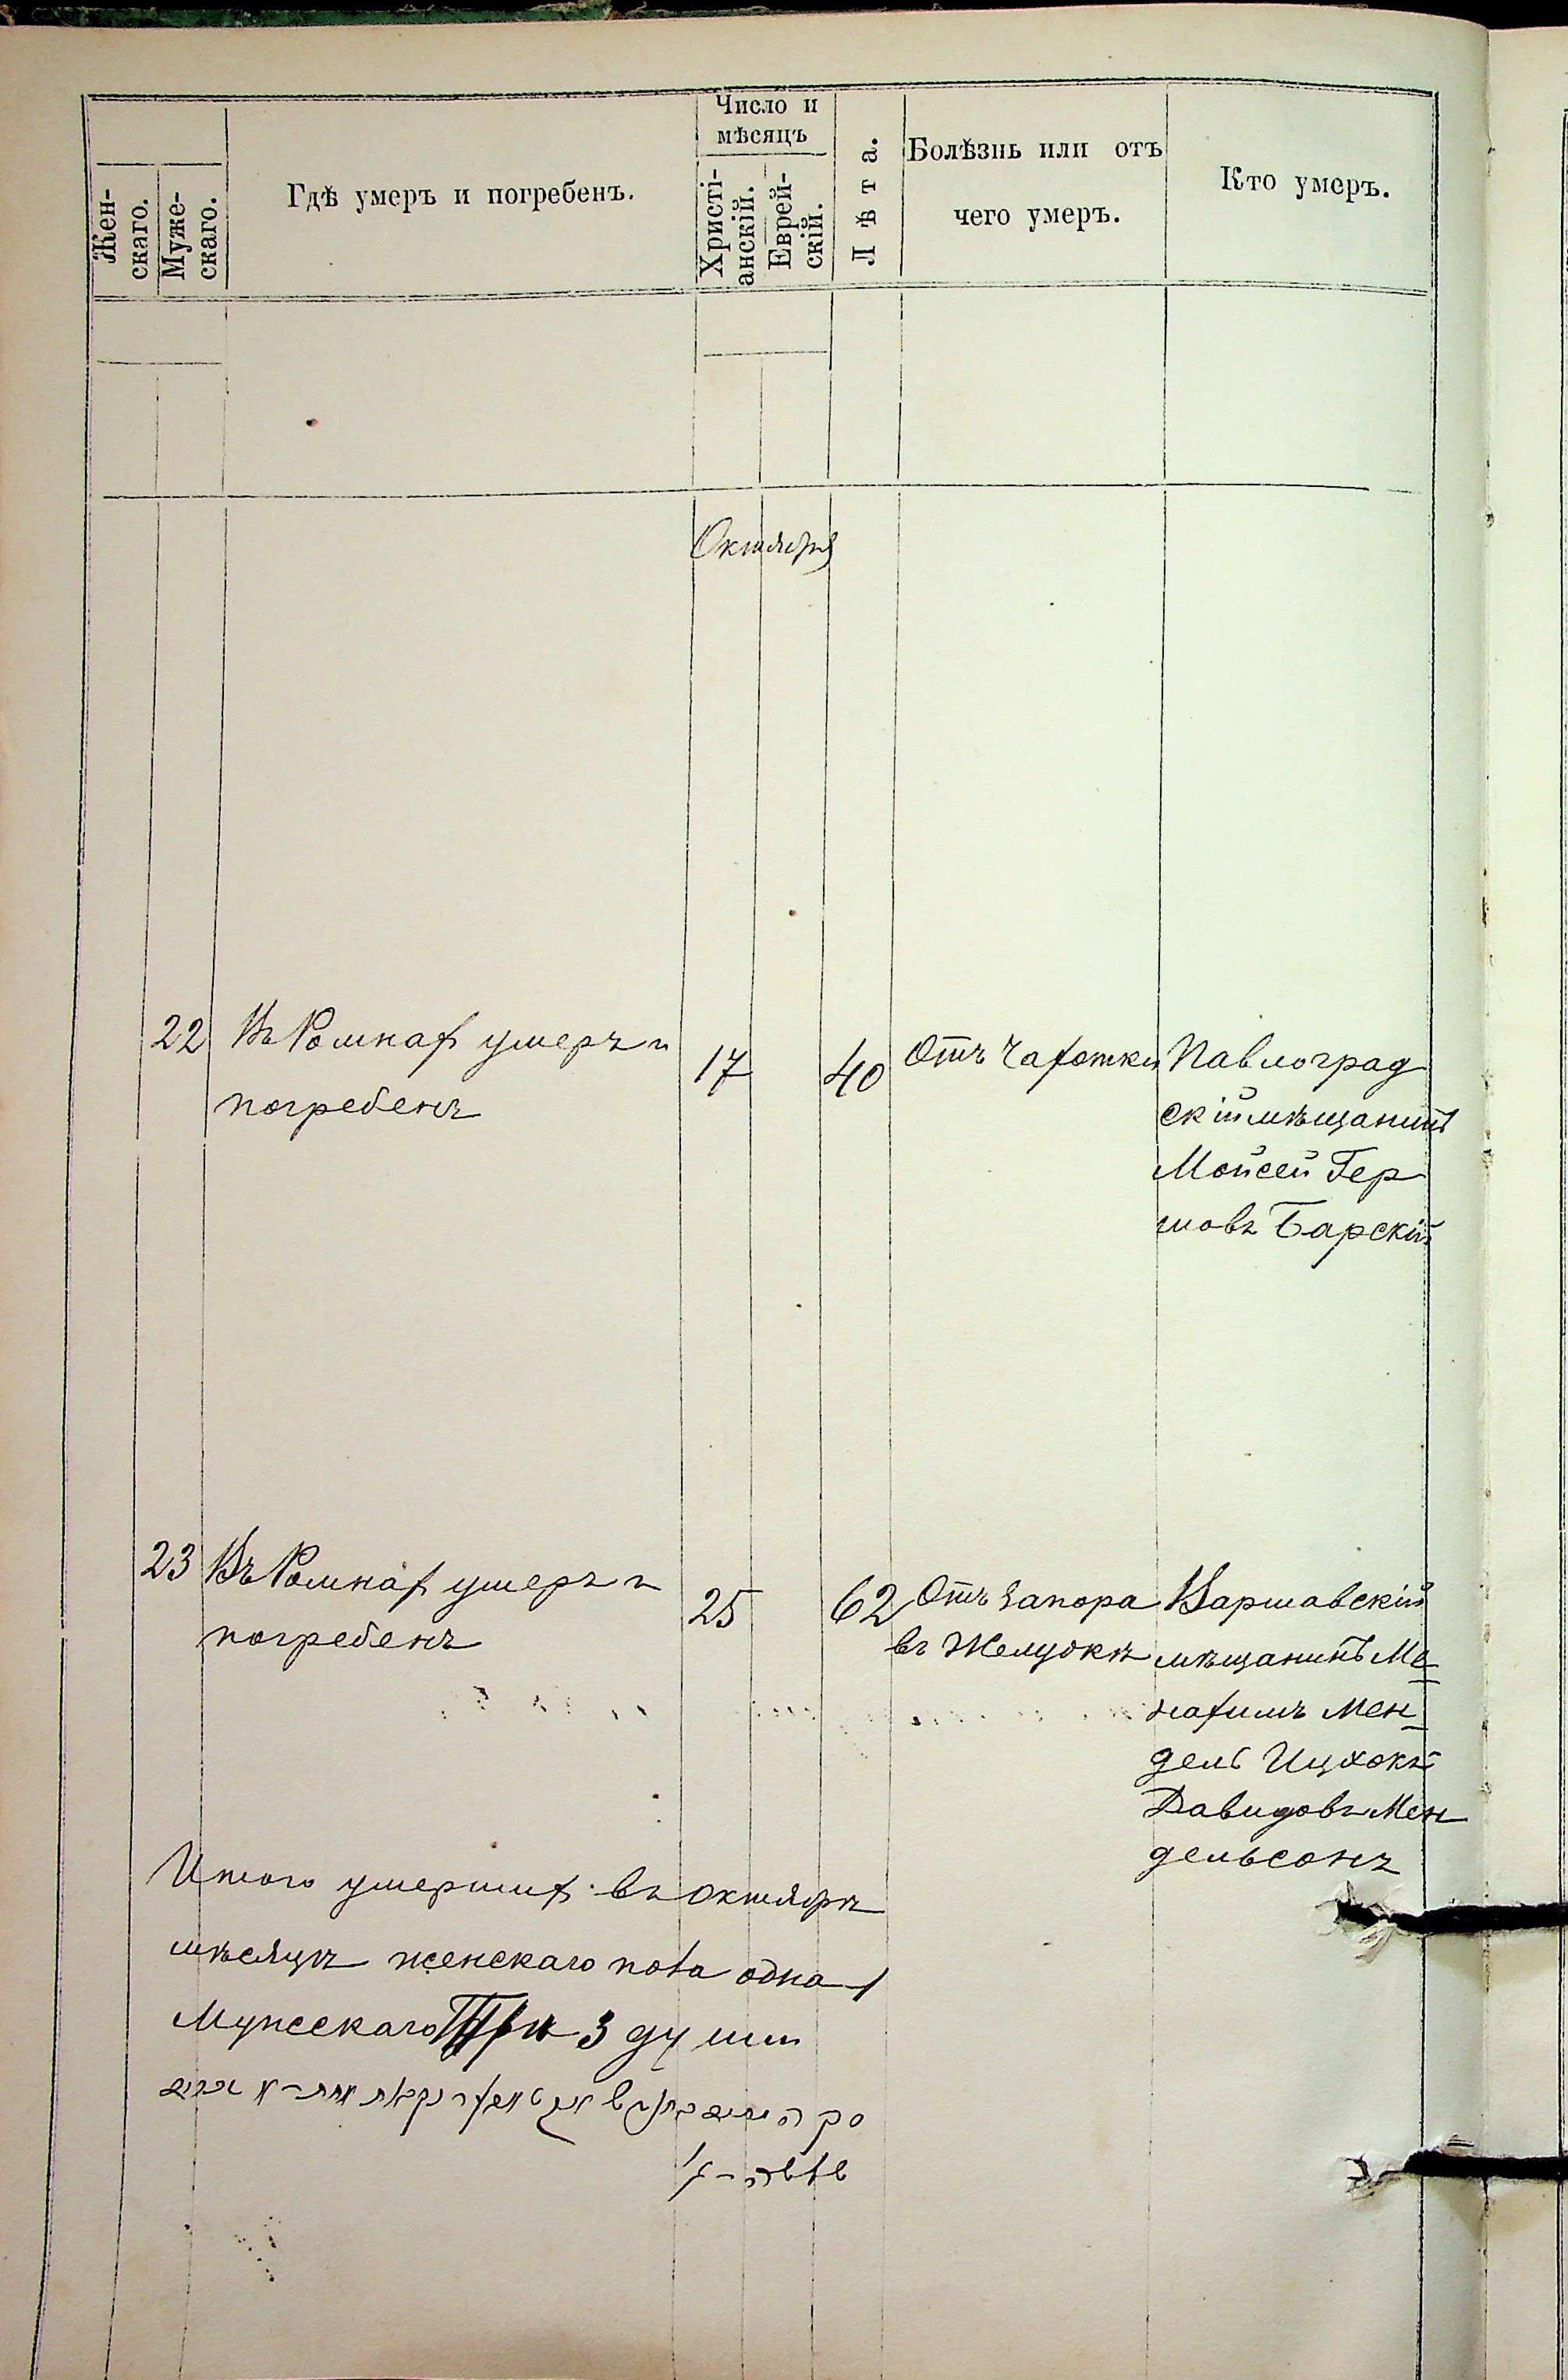 Жен-
скаго.
Муже-
скаго.
Гдѣ умеръ и погребенъ.
Число и
мѣсяцъ
Христі-
анскій.
Еврей-
скій.
Лѣта.
Болѣзнь или отъ
чего умеръ.
Кто умеръ.
Октября
22 Въ Ромнах умеръ и
погребенъ
17
40
Отъ Чахотки
Павлоград
скій мѣщанинъ
Мойсей Гер
шовъ Барскій
23 Въ Ромнах умеръ и
погребенъ
25
62
Отъ Запора
въ Желудкѣ
Варшавскій
мѣщанинъ Ме
нахимъ Мен
дель Ицхокъ
Давидовъ Мен
дельсонъ
Итого умерших въ октябрѣ
мѣсяцѣ женскаго пола одна 1
Мужескаго Три 3 души